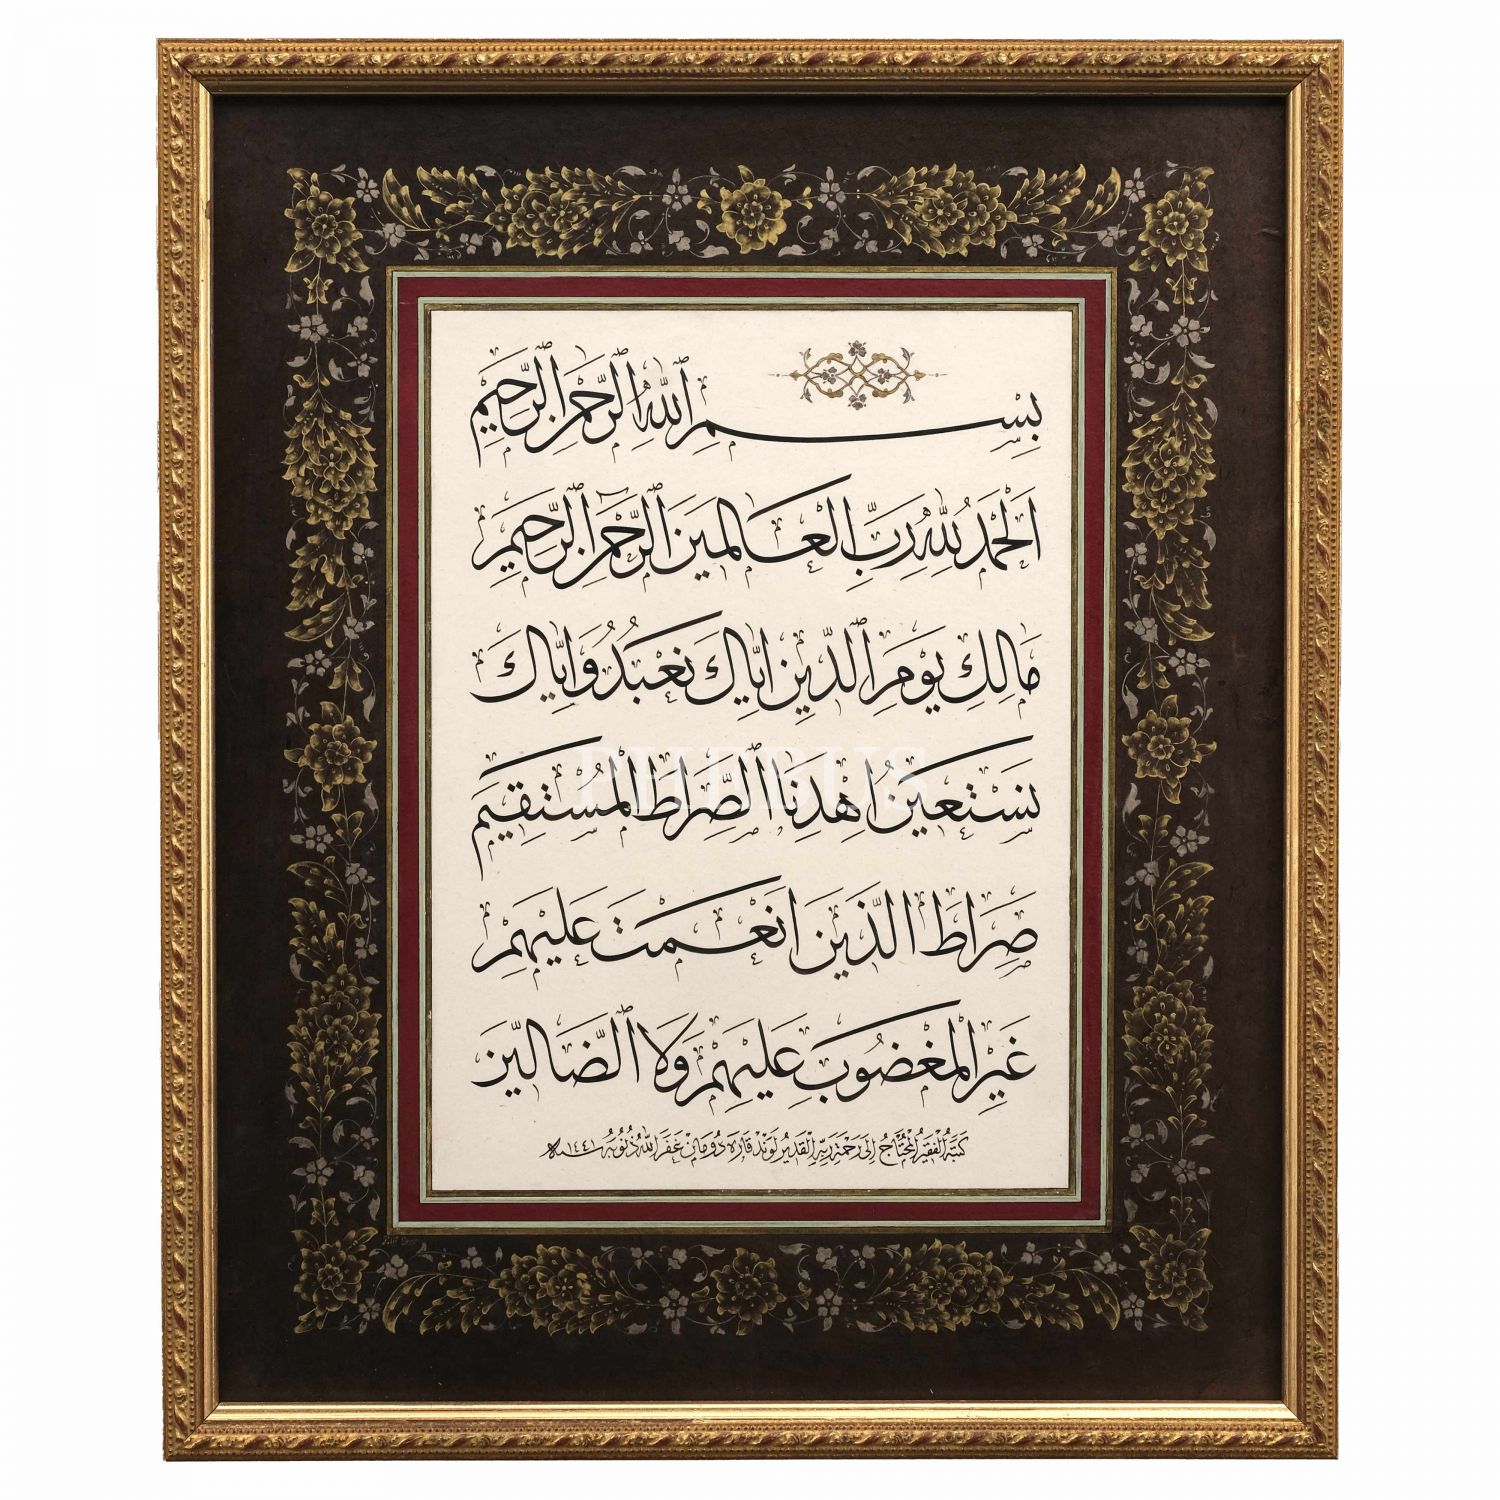 بِسْمِ اللهِ الرَّحْمنِ الرَّحِيمِ
اَلْحَمْدُ لِلهِ رَبِّ الْعَالَمِينَ الرَّحْمنِ الرَّحِيمِ
مَالِكِ يَوْمِ الدِّينِ اِيَّاكَ نَعْبُدُ وَاِيَّاكَ
نَسْتَعِينُ اِهْدِنَا الصِّرَاطَ الْمُسْتَقِيمَ
صِرَاطَ الَّذِينَ اَنْعَمْتَ عَلَيْهِمْ
غَيْرِ الْمَغْضُوبِ عَلَيْهِمْ وَلَا الضَّالِّينَ
كتبه الفقير المحتاج الى رحمة ربه القدير لوند قاره دومان غفر الله ذنوبه سنه ١٤٤١
PHEBUS